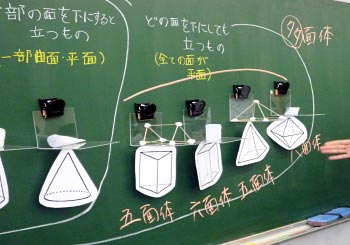 部の面を下にすると
立つもの
一部曲面・平面)
どの面を下にしても
立つもの
(全ての面が
平面)
多面体
五面体
六面体
五面体
面体